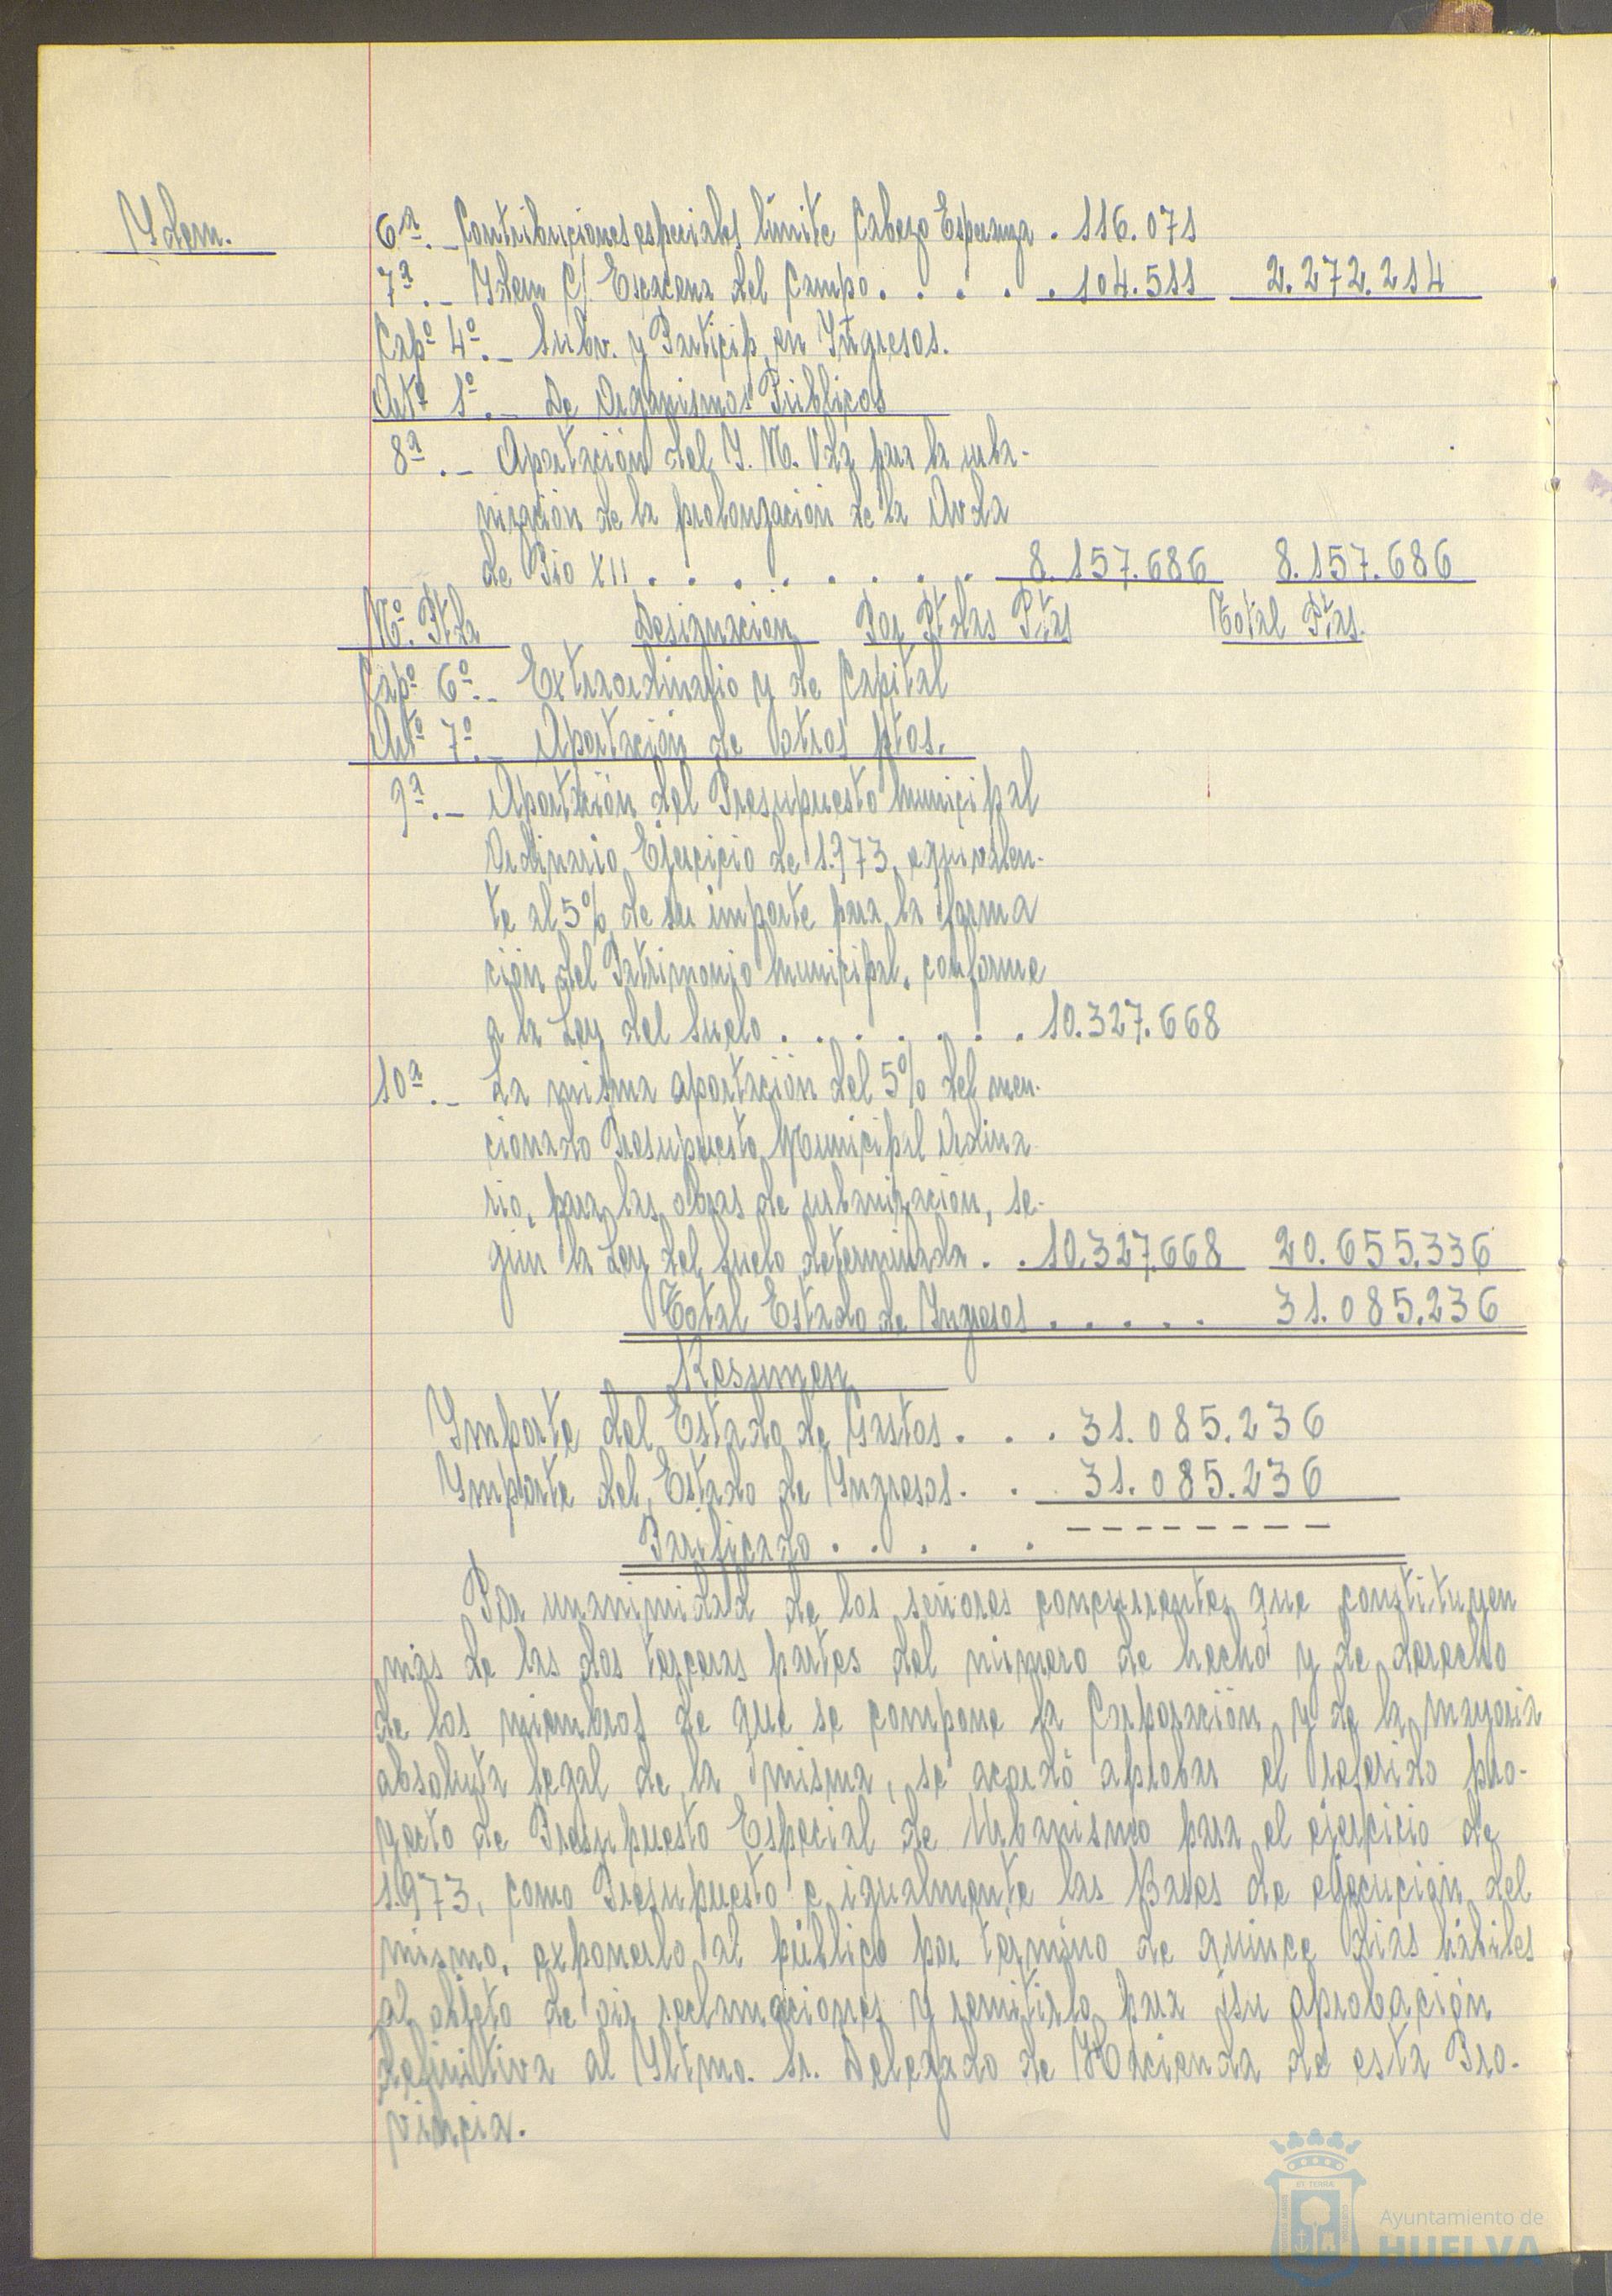 Ydem.
6ª.- Contribuciones especiales límite Cabezo Esperanza . 116.071
7ª.- Ydem C/. Escacena del Campo . . . . . 104.511 2.272.214
Capº 4º.- Subv. y Particip. en Yngresos.
Artº 1º.- De Organismos Públicos
8ª.- Aportación del Y. N. Vda para la urba-
nización de la prolongación de la Avda
de Pio XII . . . . . . . . 8.157.686 8.157.686
Nº. Ptda Designación Por Ptdas Ptas Total Ptas.
Capº 6º.- Extraordinario y de Capital
Artº 7º.- Aportación de otros ptos.
9ª.- Aportación del Presupuesto Municipal
Ordinario Ejercicio de 1.973, equivalen-
te al 5% de su importe para la forma
ción del Patrimonio Municipal, conforme
a la Ley del Suelo . . . . . . . 10.327.668
10ª.- La misma aportación del 5% del men-
cionado Presupuesto Municipal Ordina-
rio, para las obras de urbanización, se-
gún la Ley del Suelo determinada . . 10.327.668 20.655.336
Total Estado de Yngresos . . . . . 31.085.236
Resumen
Ymporte del Estado de Gastos . . . 31.085.236
Ymporte del Estado de Yngresos . . 31.085.236
Parificado . . . . . ---------
Por unanimidad de los señores concurrentes que constituyen
más de las dos terceras partes del número de hecho y de derecho
de los miembros de que se compone la Corporación y de la mayoria
absoluta legal de la misma, se acordó aprobar el referido pro-
yecto de Presupuesto Especial de Urbanismo para el ejercicio de
1.973, como Presupuesto e igualmente las Bases de ejecución del
mismo, exponerlo al público por termino de quince dias hábiles
al objeto de oir reclamaciones y remitirlo para su aprobación
definitiva al Yltmo. Sr. Delegado de Hacienda de esta Pro-
vincia.
Ayuntamiento de
HUELVA